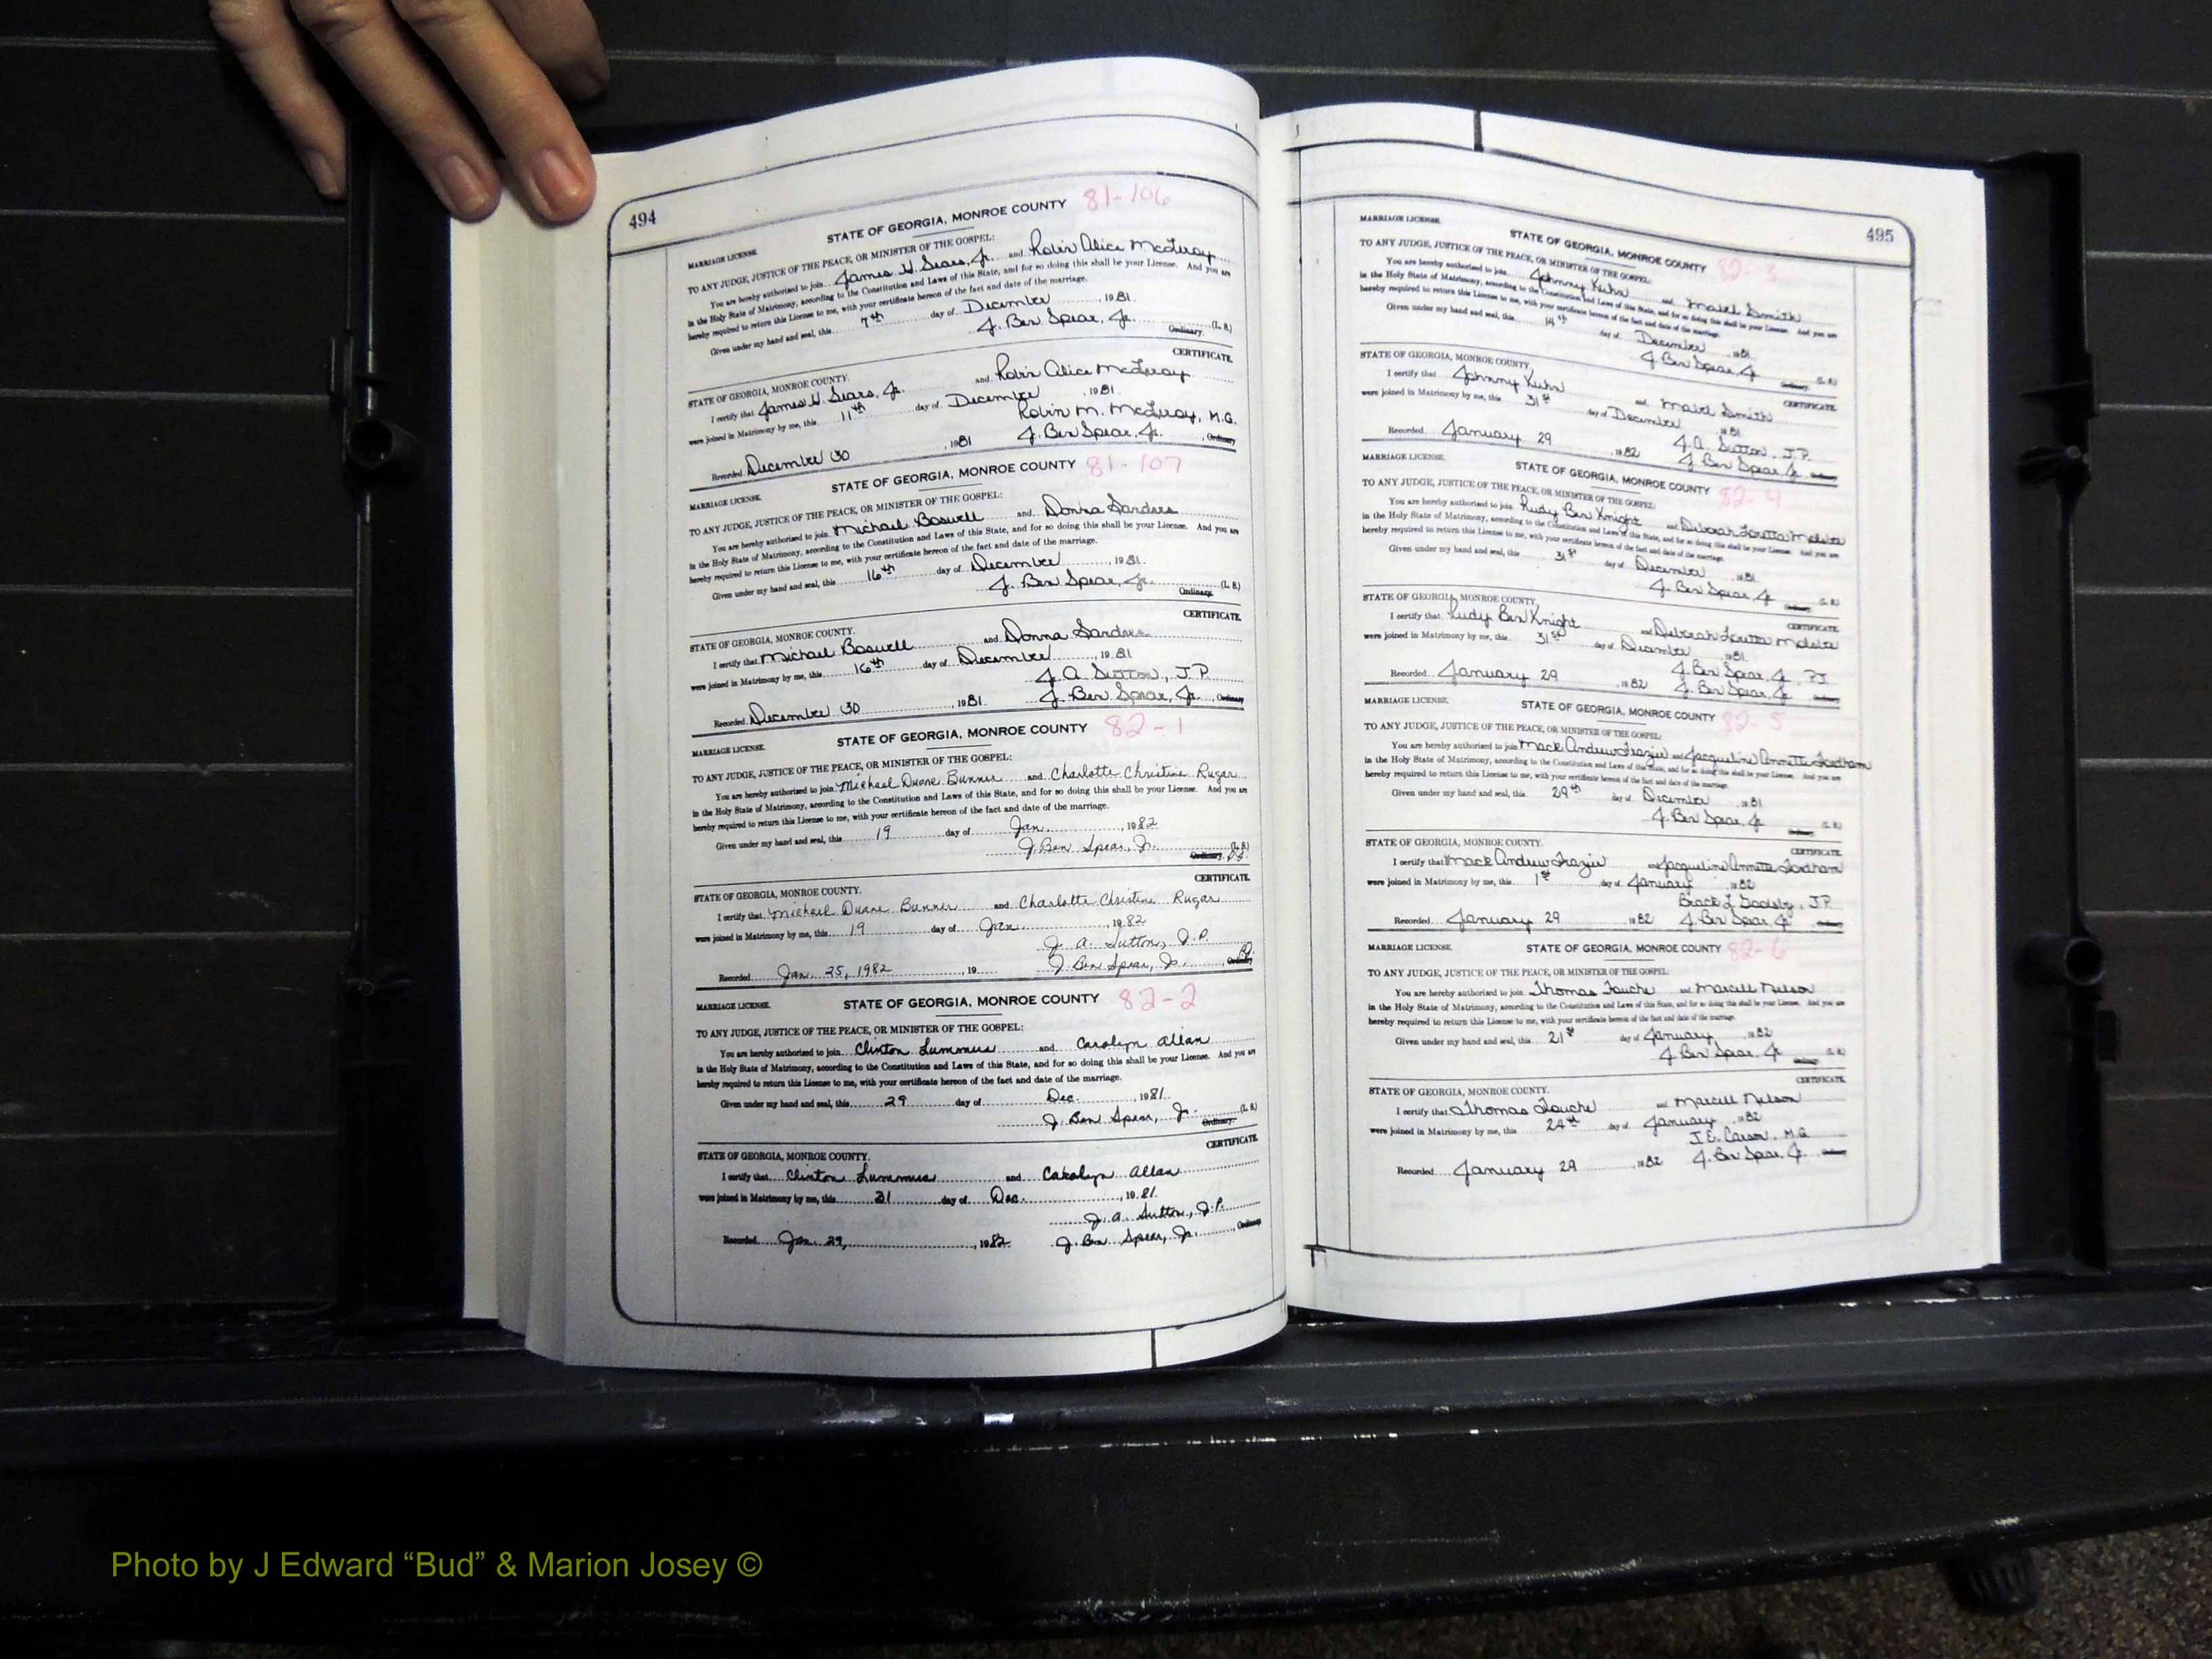 494
STATE OF GEORGIA, MONROE COUNTY 81-106
MARRIAGE LICENSE.
TO ANY JUDGE, JUSTICE OF THE PEACE, OR MINISTER OF THE GOSPEL:
You are hereby authorized to join James H. Sears, Jr. and Robin Alice McLeroy
in the Holy State of Matrimony, according to the Constitution and Laws of this State, and for so doing this shall be your License. And you are
hereby required to return this License to me, with your certificate hereon of the fact and date of the marriage.
Given under my hand and seal, this 7th day of December, 1981.
J. Ben Spear, Jr. (L. S.)
Ordinary.
CERTIFICATE.
STATE OF GEORGIA, MONROE COUNTY.
I certify that James H. Sears, Jr. and Robin Alice McLeroy
were joined in Matrimony by me, this 11th day of December, 1981.
Robin M. McLeroy, M.G.
Recorded December 30, 1981 J. Ben Spear, Jr., Ordinary
STATE OF GEORGIA, MONROE COUNTY 81-107
MARRIAGE LICENSE.
TO ANY JUDGE, JUSTICE OF THE PEACE, OR MINISTER OF THE GOSPEL:
You are hereby authorized to join Michael Boswell and Donna Sanders
in the Holy State of Matrimony, according to the Constitution and Laws of this State, and for so doing this shall be your License. And you are
hereby required to return this License to me, with your certificate hereon of the fact and date of the marriage.
Given under my hand and seal, this 16th day of December, 1981.
J. Ben Spear, Jr. (L. S.)
Ordinary.
CERTIFICATE.
STATE OF GEORGIA, MONROE COUNTY.
I certify that Michael Boswell and Donna Sanders
were joined in Matrimony by me, this 16th day of December, 1981
J. A. Sutton, J.P.
Recorded December 30, 1981. J. Ben Spear, Jr., Ordinary
STATE OF GEORGIA, MONROE COUNTY 82-1
MARRIAGE LICENSE.
TO ANY JUDGE, JUSTICE OF THE PEACE, OR MINISTER OF THE GOSPEL:
You are hereby authorized to join Michael Duane Bunner and Charlotte Christine Rugar
in the Holy State of Matrimony, according to the Constitution and Laws of this State, and for so doing this shall be your License. And you are
hereby required to return this License to me, with your certificate hereon of the fact and date of the marriage.
Given under my hand and seal, this 19 day of Jan., 1982
J. Ben Spear, Jr. (L. S.)
Ordinary.
CERTIFICATE.
STATE OF GEORGIA, MONROE COUNTY.
I certify that Michael Duane Bunner and Charlotte Christine Rugar
were joined in Matrimony by me, this 19 day of Jan., 1982
J. A. Sutton, J.P.
Recorded Jan. 25, 1982, 19 J. Ben Spear, Jr., Ordinary
STATE OF GEORGIA, MONROE COUNTY 82-2
MARRIAGE LICENSE.
TO ANY JUDGE, JUSTICE OF THE PEACE, OR MINISTER OF THE GOSPEL:
You are hereby authorized to join Clinton Lummus and Carolyn Allan
in the Holy State of Matrimony, according to the Constitution and Laws of this State, and for so doing this shall be your License. And you are
hereby required to return this License to me, with your certificate hereon of the fact and date of the marriage.
Given under my hand and seal, this 29 day of Dec., 1981.
J. Ben Spear, Jr. (L. S.)
Ordinary.
CERTIFICATE.
STATE OF GEORGIA, MONROE COUNTY.
I certify that Clinton Lummus and Carolyn Allan
were joined in Matrimony by me, this 31 day of Dec., 1981.
J. A. Sutton, J.P.
Recorded Jan. 29, 1982 J. Ben Spear, Jr., Ordinary
495
MARRIAGE LICENSE.
STATE OF GEORGIA, MONROE COUNTY 82-3
TO ANY JUDGE, JUSTICE OF THE PEACE, OR MINISTER OF THE GOSPEL:
You are hereby authorized to join Johnny Kuhn and Mabel Smith
in the Holy State of Matrimony, according to the Constitution and Laws of this State, and for so doing this shall be your License. And you are
hereby required to return this License to me, with your certificate hereon of the fact and date of the marriage.
Given under my hand and seal, this 14th day of December, 1981
J. Ben Spear, Jr. (L. S.)
Ordinary.
CERTIFICATE.
STATE OF GEORGIA, MONROE COUNTY.
I certify that Johnny Kuhn and Mabel Smith
were joined in Matrimony by me, this 31st day of December, 1981
J. A. Sutton, J.P.
Recorded January 29, 1982 J. Ben Spear, Jr. Ordinary
MARRIAGE LICENSE.
STATE OF GEORGIA, MONROE COUNTY 82-4
TO ANY JUDGE, JUSTICE OF THE PEACE, OR MINISTER OF THE GOSPEL:
You are hereby authorized to join Rudy Ben Knight and Deborah Loretta
in the Holy State of Matrimony, according to the Constitution and Laws of this State, and for so doing this shall be your License. And you are
hereby required to return this License to me, with your certificate hereon of the fact and date of the marriage.
Given under my hand and seal, this 31st day of December, 1981
J. Ben Spear, Jr. (L. S.)
Ordinary.
CERTIFICATE.
STATE OF GEORGIA, MONROE COUNTY.
I certify that Rudy Ben Knight and Deborah Loretta
were joined in Matrimony by me, this 31st day of December, 1981.
J. Ben Spear, Jr., P.J.
Recorded January 29, 1982 J. Ben Spear, Jr. Ordinary
MARRIAGE LICENSE.
STATE OF GEORGIA, MONROE COUNTY 82-5
TO ANY JUDGE, JUSTICE OF THE PEACE, OR MINISTER OF THE GOSPEL:
You are hereby authorized to join Mack Andrew Frazier and Jacqueline Annette Fordham
in the Holy State of Matrimony, according to the Constitution and Laws of this State, and for so doing this shall be your License. And you are
hereby required to return this License to me, with your certificate hereon of the fact and date of the marriage.
Given under my hand and seal, this 29th day of December, 1981
J. Ben Spear, Jr. (L. S.)
Ordinary.
CERTIFICATE.
STATE OF GEORGIA, MONROE COUNTY.
I certify that Mack Andrew Frazier and Jacqueline Annette Fordham
were joined in Matrimony by me, this 1st day of January, 1982
L. J.P.
Recorded January 29, 1982 J. Ben Spear, Jr. Ordinary
MARRIAGE LICENSE.
STATE OF GEORGIA, MONROE COUNTY 82-6
TO ANY JUDGE, JUSTICE OF THE PEACE, OR MINISTER OF THE GOSPEL:
You are hereby authorized to join Thomas Fouche and Marcell Nelson
in the Holy State of Matrimony, according to the Constitution and Laws of this State, and for so doing this shall be your License. And you are
hereby required to return this License to me, with your certificate hereon of the fact and date of the marriage.
Given under my hand and seal, this 21st day of January, 1982
J. Ben Spear, Jr. (L. S.)
Ordinary.
CERTIFICATE.
STATE OF GEORGIA, MONROE COUNTY.
I certify that Thomas Fouche and Marcell Nelson
were joined in Matrimony by me, this 24th day of January, 1982
J. E. Carson, M.G.
Recorded January 29, 1982 J. Ben Spear, Jr. Ordinary
Photo by J Edward “Bud” & Marion Josey ©